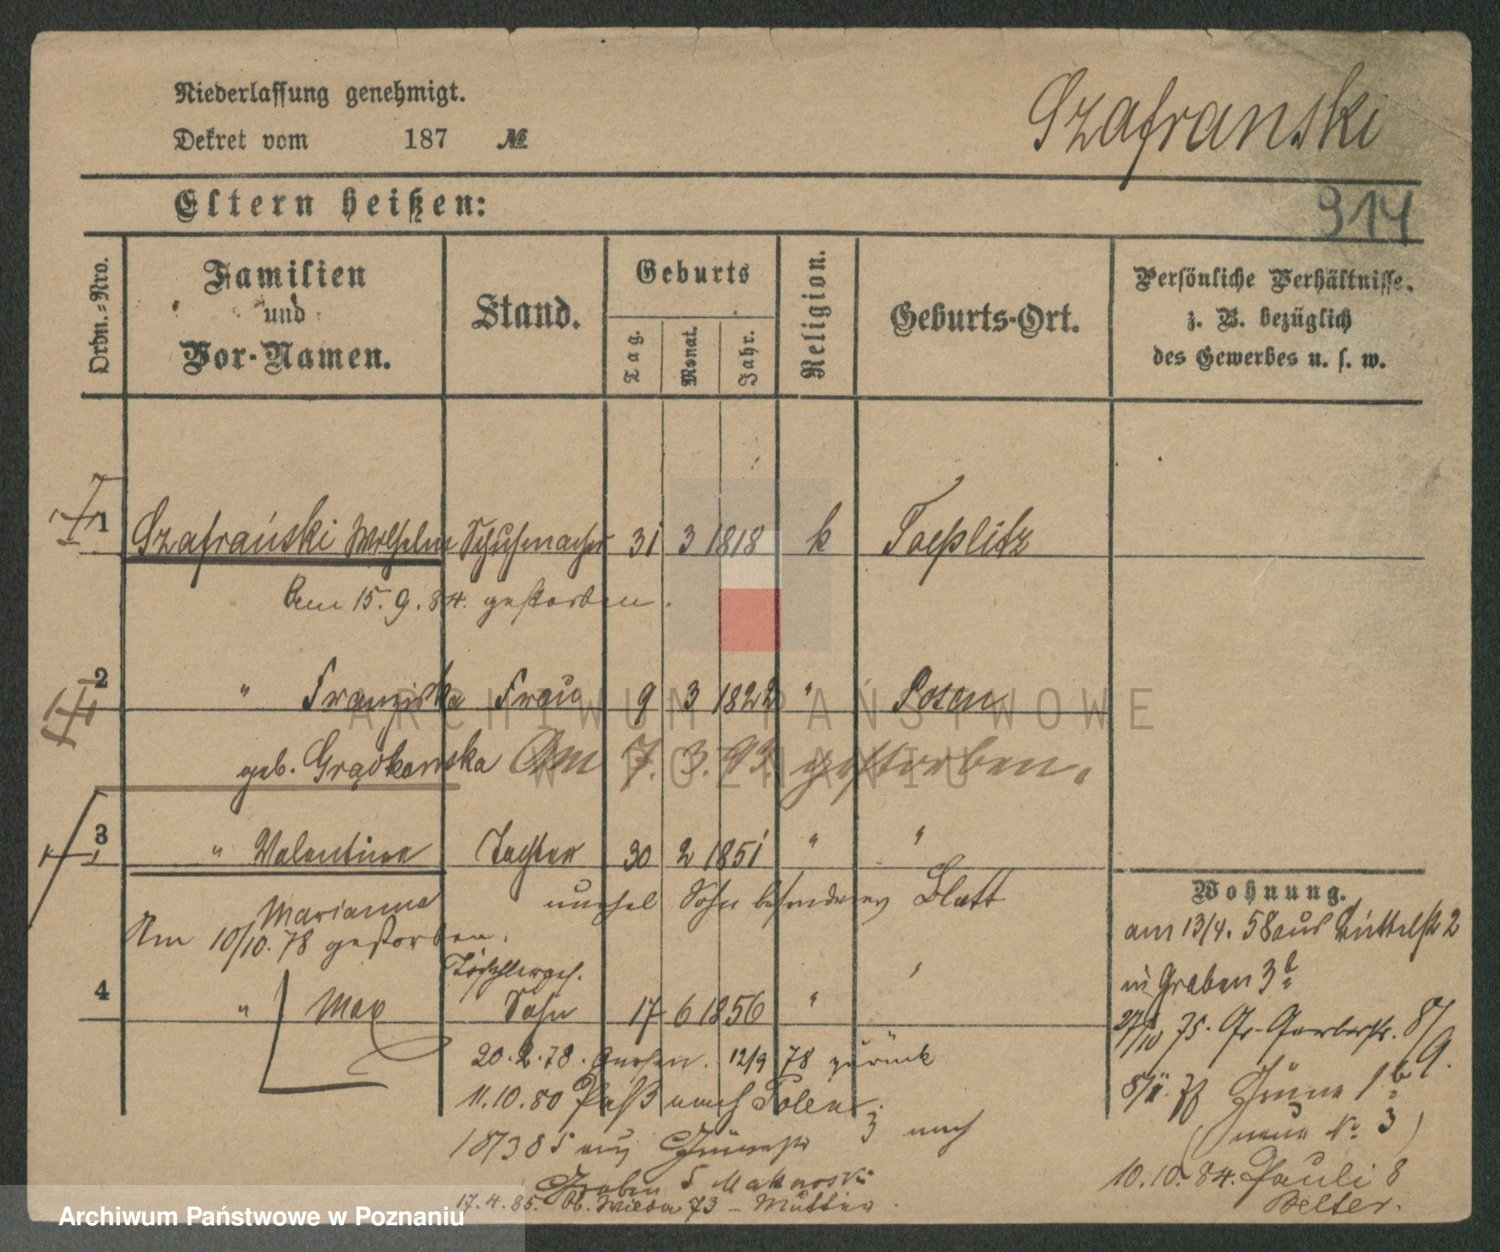 Niederlassung genehmigt.
Dekret vom 187 №
Szafranski
Eltern heißen:
914
Ordn.-Nro.
Familien
und
Vor-Namen.
Stand.
Geburts
Tag.
Monat.
Jahr.
Religion.
Geburts-Ort.
Persönliche Verhältnisse,
z. B. bezüglich
des Gewerbes u. s. w.
1 Szafrański Wilhelm Schuhmacher 31 3 1818 k Toeplitz
Am 15. 9. 84. gestorben.
2 " Franziska Frau 9 3 1822 " Posen
geb. Am 7. 3. 93. gestorben.
3 " Valentine Tochter 30 2 1851 " "
unehel Sohn besonderes Blatt
Marianna
Am 10/10. 78 gestorben.
4 " Max Sohn 17 6 1856 " "
20. 2. 78. 12/9 78 zurück
11. 10. 80 Paß nach Polen.
nach
Graben 5
17. 4. 85. 73 - Mutter
Wohnung.
am 13/4. 58 aus 2
in Graben 3
27/10 75. Gr. Gerberstr.
Grüne 1
(neue No 3)
10. 10. 84. Pauli 8
ARCHIWUM PAŃSTWOWE
W POZNANIU
Archiwum Państwowe w Poznaniu